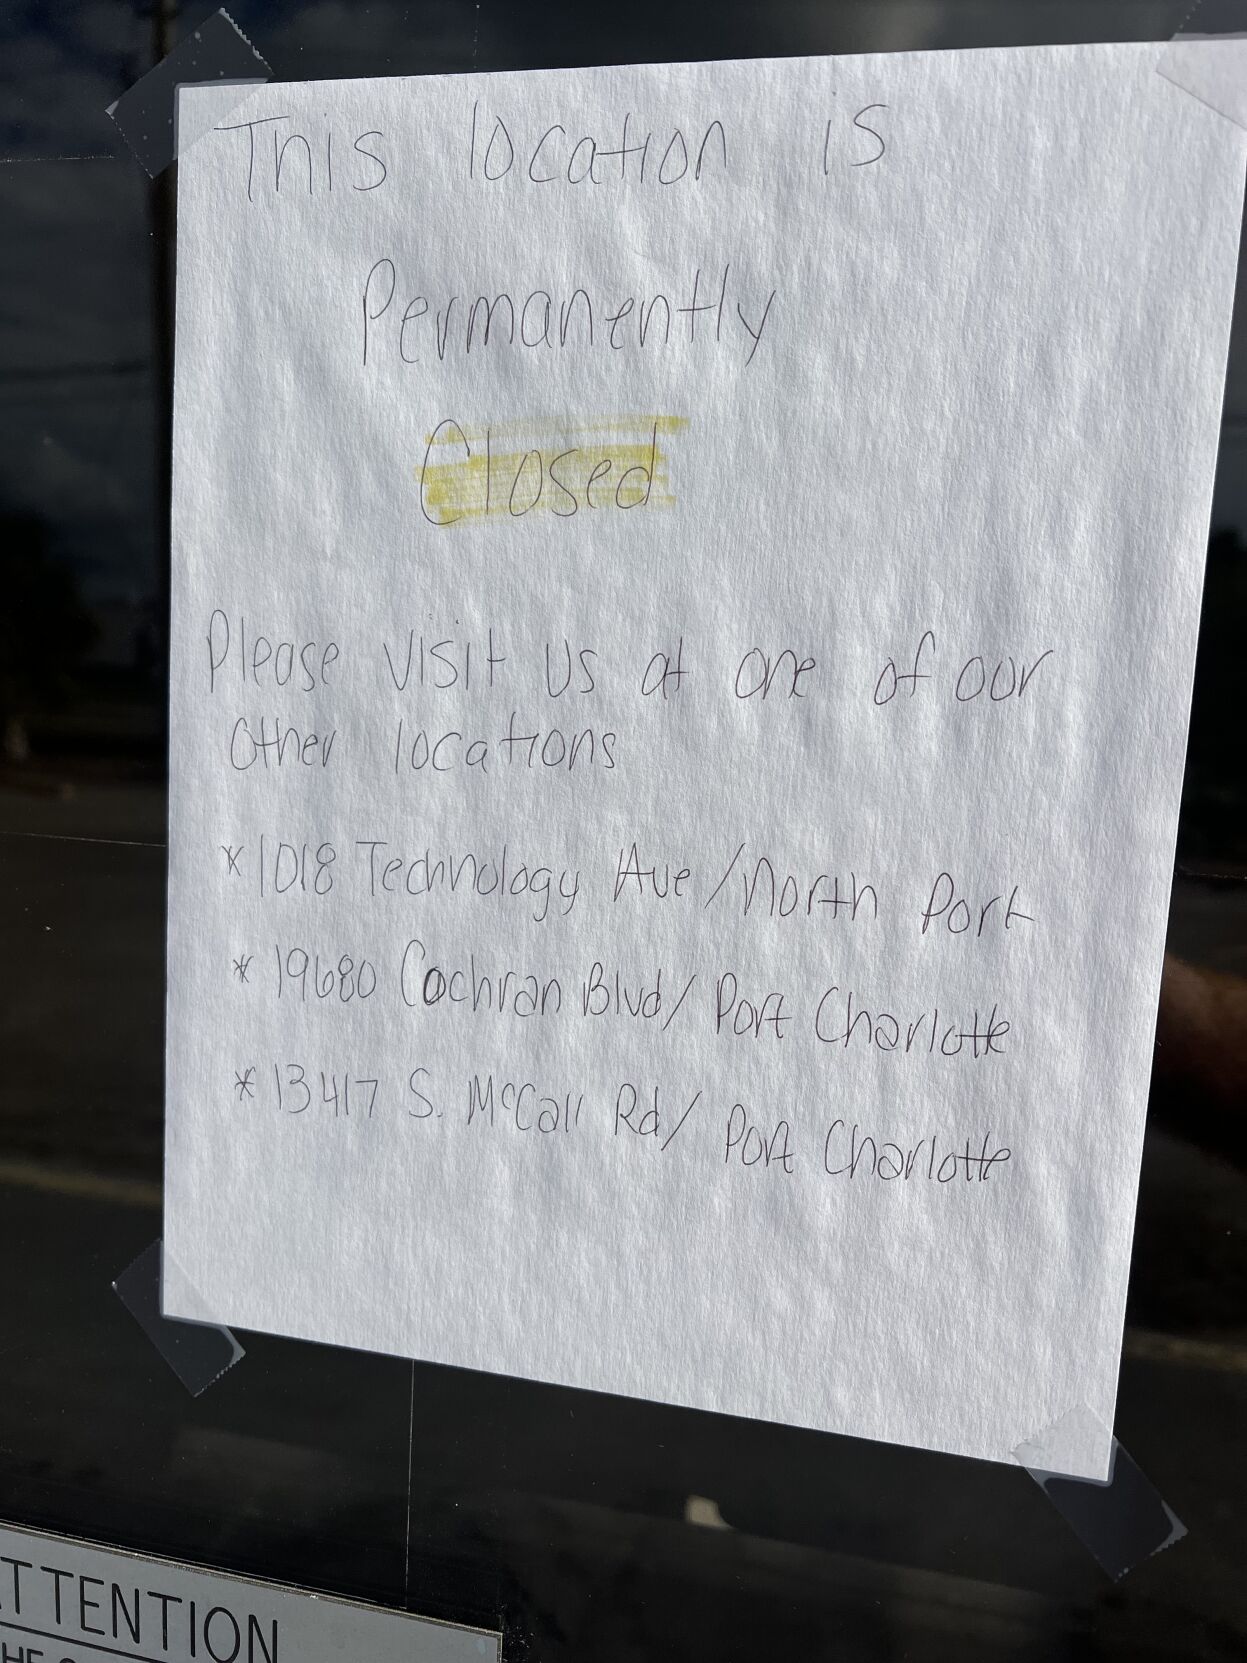 This location is
Permanently
Closed
Please visit us at one of our
other locations
*1018 Technology Ave/North Port
* 19680 Cochran Blvd/ Port Charlotte
* 13417 S. McCall Rd/ Port Charlotte
ATTENTION